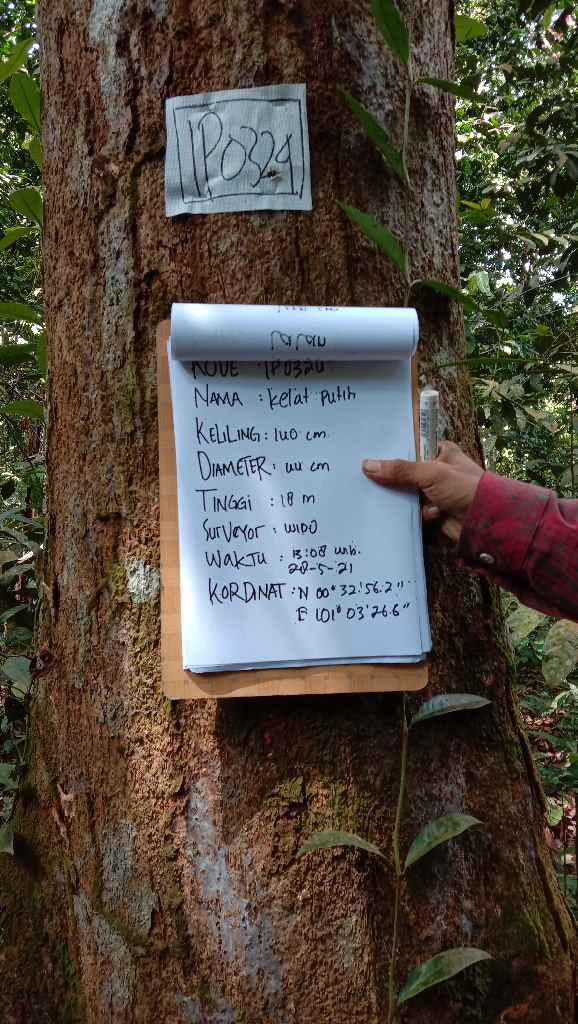 1P0324
KODE : 1P0320
NAMA : Kelat putih
KELILING : 140 cm
DIAMETER : 44 cm
TINGGI : 18 m
Surveyor : WIDO
WAKTU : 13:08 wib.
28-5-'21
KORDINAT : N 00° 32.'56.2"
E 101° 03'26.6"